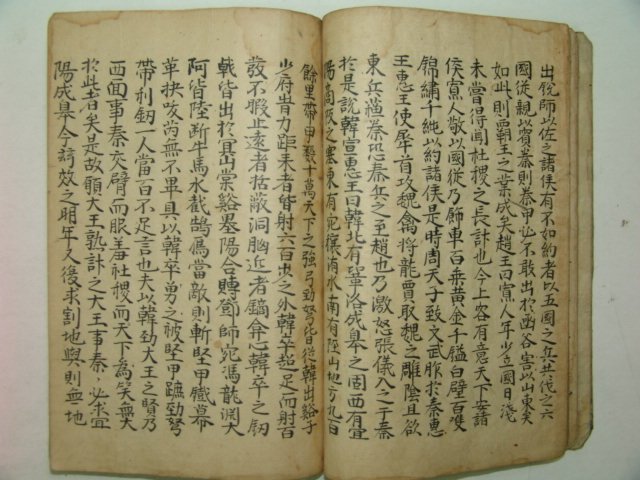 出銳師以佐之諸侯有不如約者以五國之兵共伐之六
國從親以賓秦則秦甲必不敢出於函谷害以山東矣
如此則霸王之業成矣趙王曰寡人年少立國日淺
未嘗得聞社稷之長計也今上客有意天下安諸
侯寡人敬以國從乃飾車百乘黃金千鎰白璧百雙
錦繡千純以約諸侯是時周天子致文武胙於秦惠
王惠王使犀首攻魏禽將龍賈取魏之雕陰且欲
東兵蘇秦恐秦兵之至趙也乃激怒張儀入之于秦
於是說韓宣惠王曰韓北有鞏洛成皋之固西有宜
陽商阪之塞東有宛穰洧水南有陘山地方九百
餘里帶甲數十萬天下之強弓勁弩皆從韓出谿子
少府時力距来者皆射六百步之外韓卒超足而射百
發不暇止遠者括蔽洞胸近者鏑弇心韓卒之釰
戟皆出於冥山棠谿墨陽合賻鄧師宛馮龍淵大
阿皆陸斷牛馬水截鵠鴈當敵則斬堅甲鐵幕
革抉㕹芮無不畢具以韓卒勇之被堅甲蹠勁弩
帶利釰一人當百不足言也夫以韓勁大王之賢乃
西面事秦交臂而服羞社稷而天下為笑無大
於此者矣是故願大王孰計之大王事秦必求宜
陽成皋今玆效之明年又復求割地與則無地